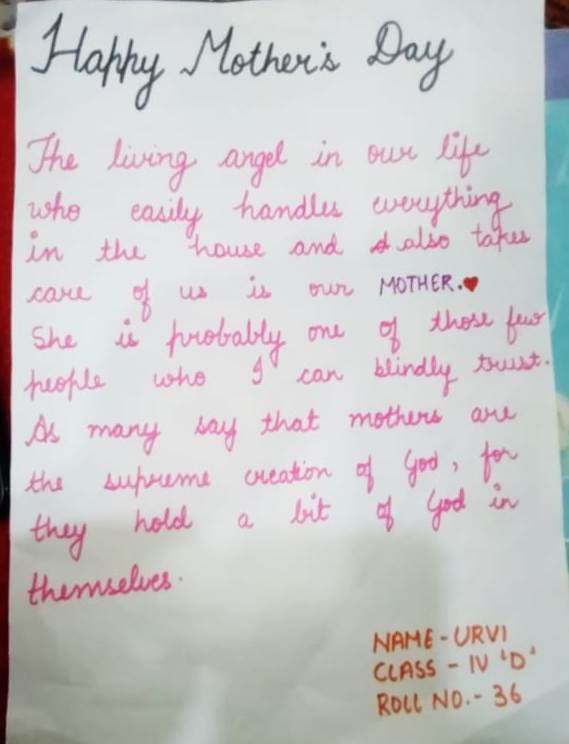 Happy Mother's Day
The living angel in our life
who easily handles everything
in the house and also takes
care of us is our MOTHER.♥
She is probably one of those few
people who I can blindly trust.
As many say that mothers are
the supreme creation of God, for
they hold a bit of God in
themselves.
NAME - URVI
CLASS - IV 'D'
ROLL NO. - 36